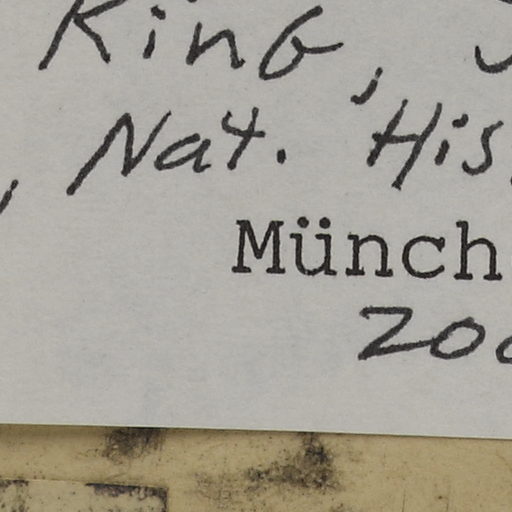 King,
, Nat. His
Münch
200